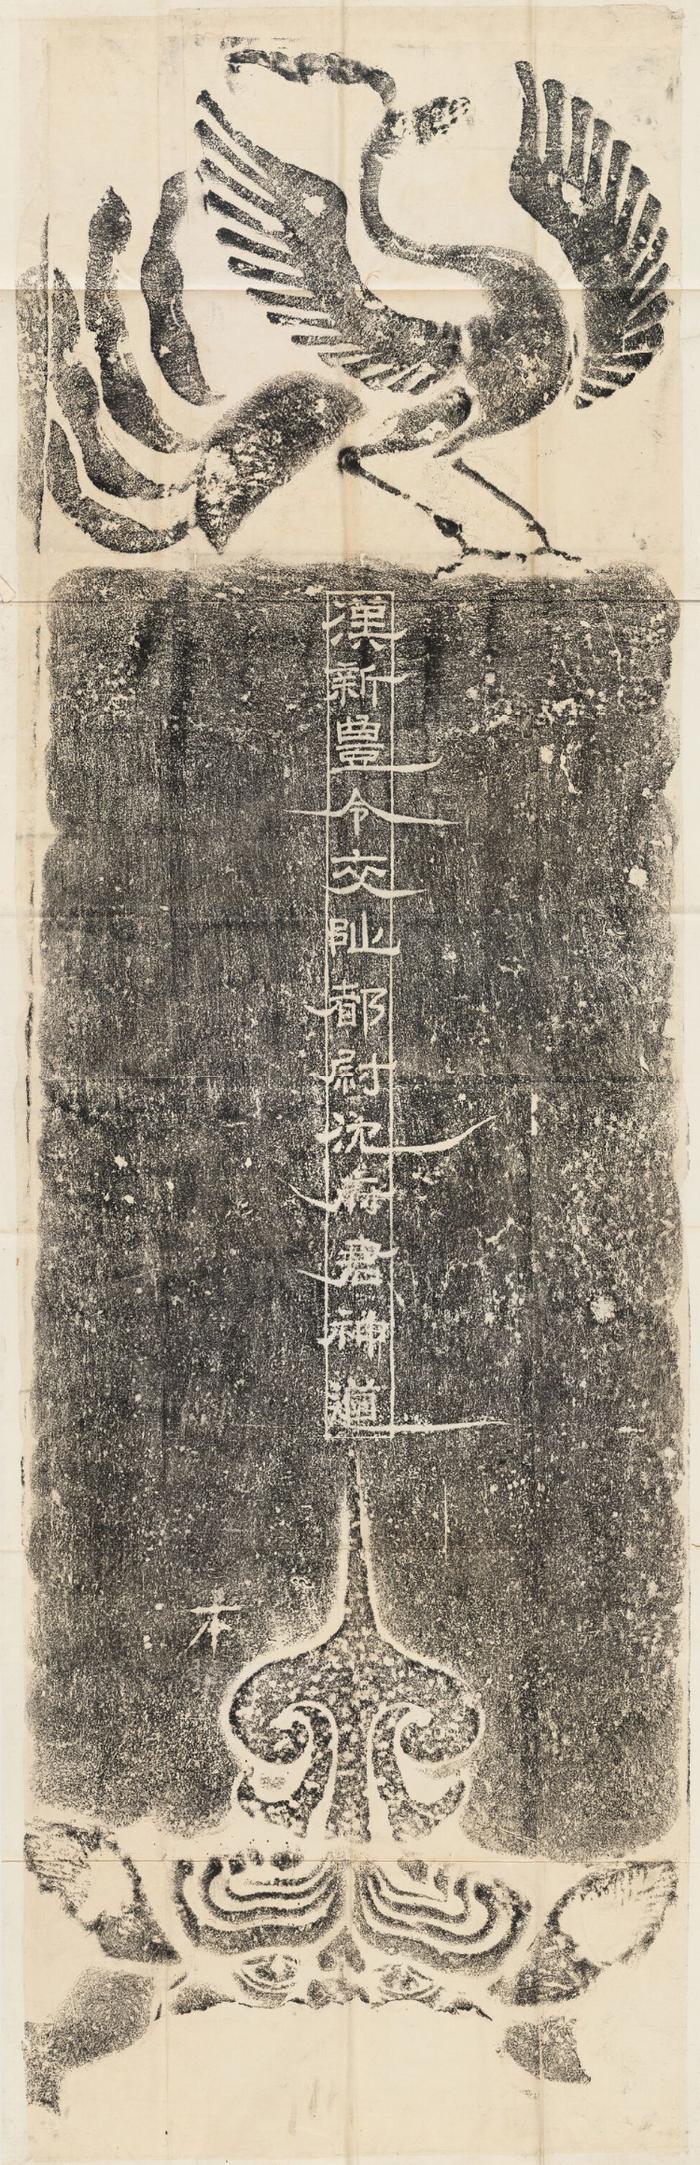 漢新豐令交阯都尉沈府君神道
本